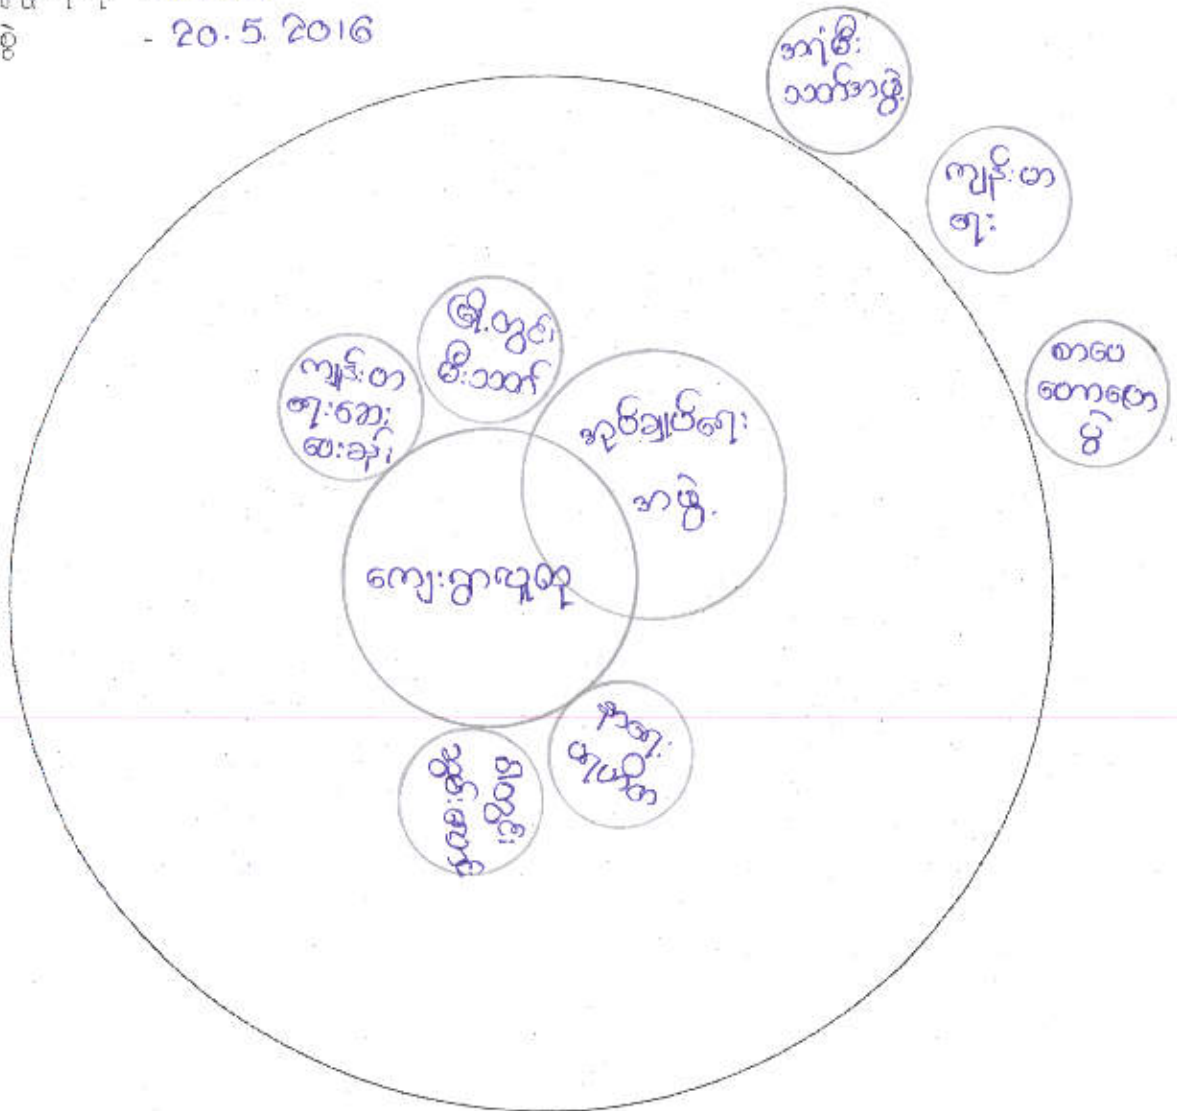 - 20.5.2016
အရံမီး
သတ်အဖွဲ့
ကျန်းမာ
ရေး
စာပေ
ဟောပြော
ပွဲ
မြို့တွင်း
မီးသတ်
ကျန်းမာ
ရေးဆေး
ပေးခန်း
အုပ်ချုပ်ရေး
အဖွဲ့
ကျေးရွာလူထု
နာရေး
ရွာတွင်း